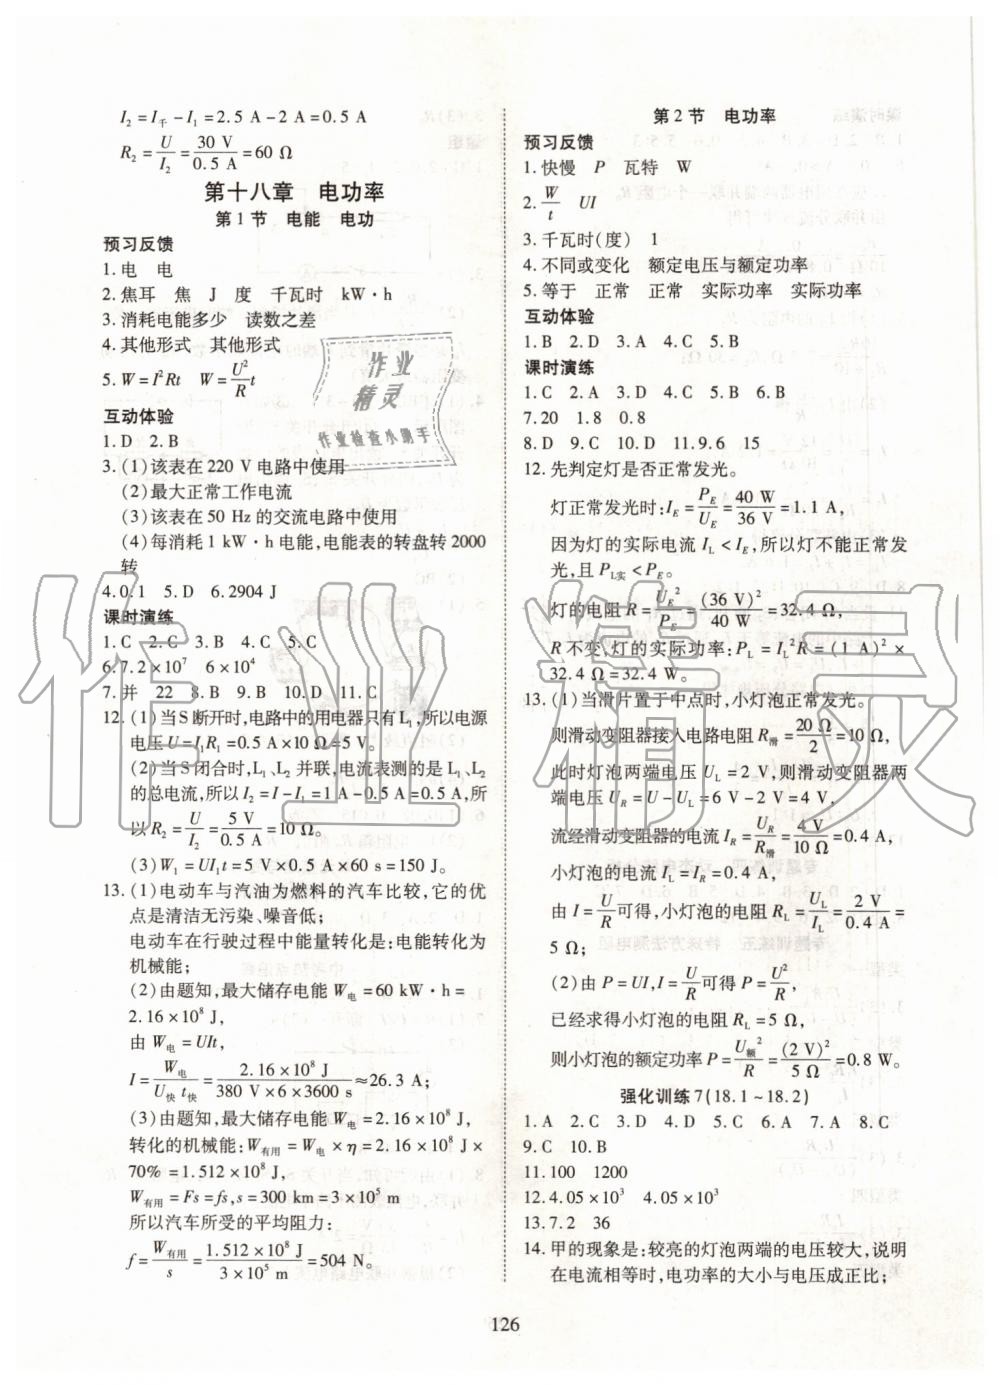 I₂=I千-I₁=2.5 A-2 A=0.5 A
R₂=U/I₂=30 V/0.5 A=60 Ω
第十八章 电功率
第1节 电能 电功
预习反馈
1.电 电
2.焦耳 焦 J 度 千瓦时 kW·h
3.消耗电能多少 读数之差
4.其他形式 其他形式
5.W=I²Rt W=U²/R t
互动体验
1.D 2.B
3.(1)该表在220 V电路中使用
(2)最大正常工作电流
(3)该表在50 Hz的交流电路中使用
(4)每消耗1 kW·h电能,电能表的转盘转2000
转
4.0.1 5.D 6.2904 J
课时演练
1.C 2.C 3.B 4.C 5.C
6.7.2×10⁷ 6×10⁴
7.并 22 8.B 9.B 10.D 11.C
12.(1)当S断开时,电路中的用电器只有L₁,所以电源
电压U=I₁R₁=0.5 A×10 Ω=5 V。
(2)当S闭合时,L₁、L₂并联,电流表测的是L₁、L₂
的总电流,所以I₂=I-I₁=1 A-0.5 A=0.5 A,所
以R₂=U/I₂=5 V/0.5 A=10 Ω。
(3)W₁=UI₁t=5 V×0.5 A×60 s=150 J。
13.(1)电动车与汽油为燃料的汽车比较,它的优
点是清洁无污染、噪音低;
电动车在行驶过程中能量转化是:电能转化为
机械能;
(2)由题知,最大储存电能W电=60 kW·h=
2.16×10⁸ J,
由W电=UIt,
I=W电/U快t快=2.16×10⁸ J/380 V×6×3600 s≈26.3 A;
(3)由题知,最大储存电能W电=2.16×10⁸ J,
转化的机械能:W有用=W电×η=2.16×10⁸ J×
70%=1.512×10⁸ J,
W有用=Fs=fs,s=300 km=3×10⁵ m,
所以汽车所受的平均阻力:
f=W有用/s=1.512×10⁸ J/3×10⁵ m=504 N。
第2节 电功率
预习反馈
1.快慢 P 瓦特 W
2.W/t UI
3.千瓦时(度) 1
4.不同或变化 额定电压与额定功率
5.等于 正常 正常 实际功率 实际功率
互动体验
1.B 2.D 3.A 4.C 5.B
课时演练
1.C 2.A 3.D 4.C 5.B 6.B
7.20 1.8 0.8
8.D 9.C 10.D 11.9.6 15
12.先判定灯是否正常发光。
灯正常发光时:I_E=P_E/U_E=40 W/36 V=1.1 A,
因为灯的实际电流I_L<I_E,所以灯不能正常发
光,且P_L实<P_E。
灯的电阻R=U_E²/P_E=(36 V)²/40 W=32.4 Ω,
R不变,灯的实际功率:P_L=I_L²R=(1 A)²×
32.4 Ω=32.4 W。
13.(1)当滑片置于中点时,小灯泡正常发光。
则滑动变阻器接入电路电阻R滑=20 Ω/2=10 Ω,
此时灯泡两端电压U_L=2 V,则滑动变阻器两
端电压U_R=U-U_L=6 V-2 V=4 V,
流经滑动变阻器的电流I_R=U_R/R滑=4 V/10 Ω=0.4 A,
小灯泡的电流I_L=I_R=0.4 A,
由I=U/R可得,小灯泡的电阻R_L=U_L/I_L=2 V/0.4 A=
5 Ω;
(2)由P=UI,I=U/R可得P=U²/R,
已经求得小灯泡的电阻R_L=5 Ω,
则小灯泡的额定功率P=U额²/R=(2 V)²/5 Ω=0.8 W。
强化训练7(18.1~18.2)
1.A 2.C 3.D 4.C 5.C 6.A 7.A 8.C
9.C 10.B
11.100 1200
12.4.05×10³ 4.05×10³
13.7.2 36
14.甲的现象是:较亮的灯泡两端的电压较大,说明
在电流相等时,电功率的大小与电压成正比;
126
作业
精灵
作业检查小助手
作业精灵